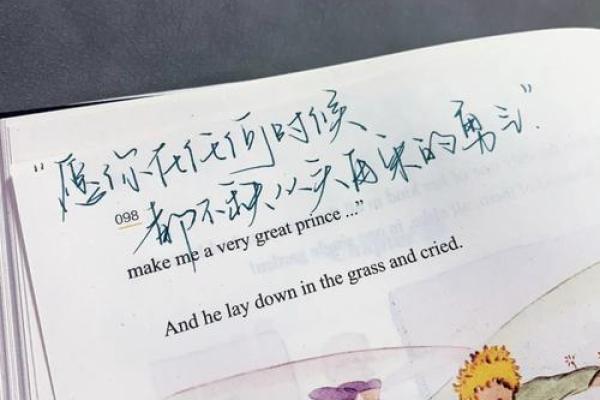 “愿你在任何时候、
都不缺从头再来的勇气”.
098
make me a very great prince ..."
And he lay down in the grass and cried.